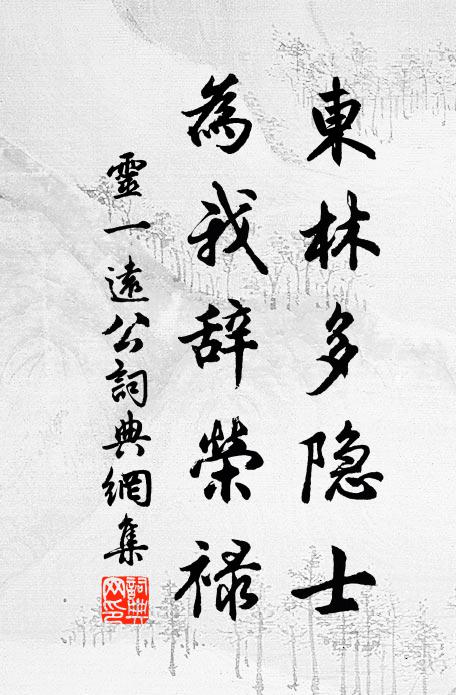 東林多隐士
為我辞榮禄
靈一遠公詞典網集
詞典